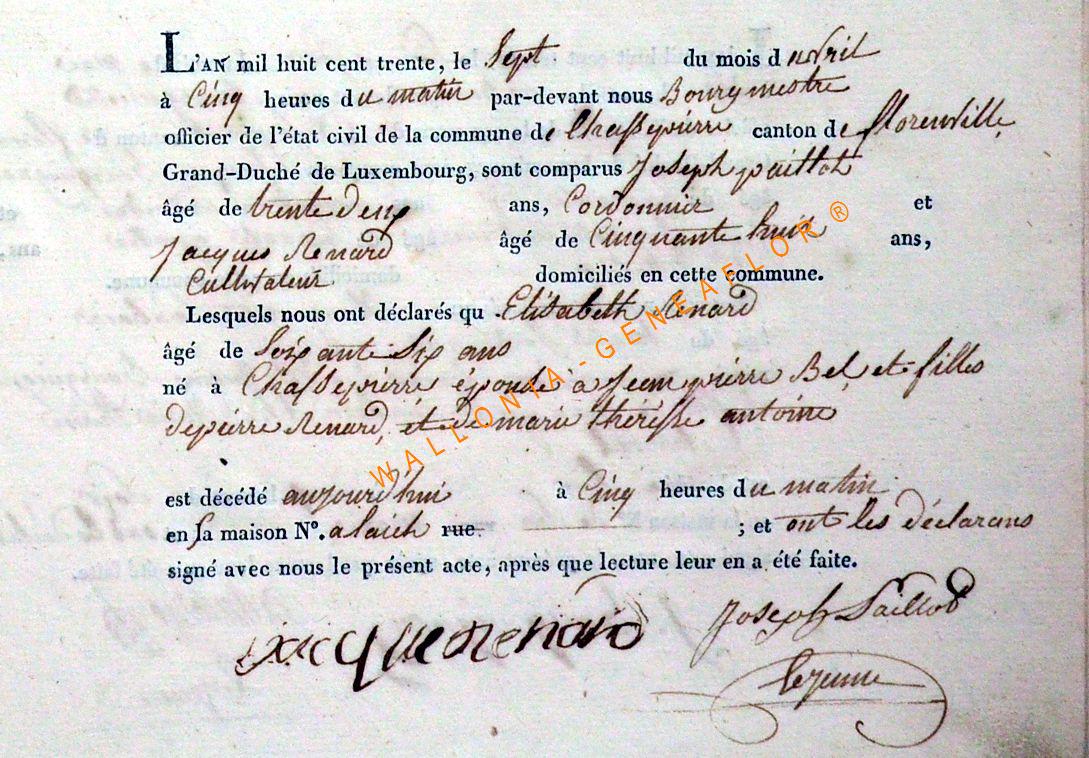 L'AN mil huit cent trente, le Sept du mois d'avril
à Cinq heures du matin par-devant nous Bourgmestre
officier de l'état civil de la commune de Chassepierre canton de florenville
Grand-Duché de Luxembourg, sont comparus Joseph paillot
âgé de trente deux ans, Cordonnier et
Jacques Renard âgé de Cinquante huit ans,
Cultivateur domiciliés en cette commune.
Lesquels nous ont déclarés qu Elisabeth Renard
âgé de Soixante Six ans
né à Chassepierre épouse à Jean pierre Bel, et filles
de pierre Renard, et de marie thérésse antoine
est décédé aujourd'hui à Cinq heures du matin
en sa maison N°. a laich rue ; et ont les déclarans
signé avec nous le présent acte, après que lecture leur en a été faite.
Jacque Renard Joseph Paillot
Lejeune
WALLONIA-GENEAFLOR ®